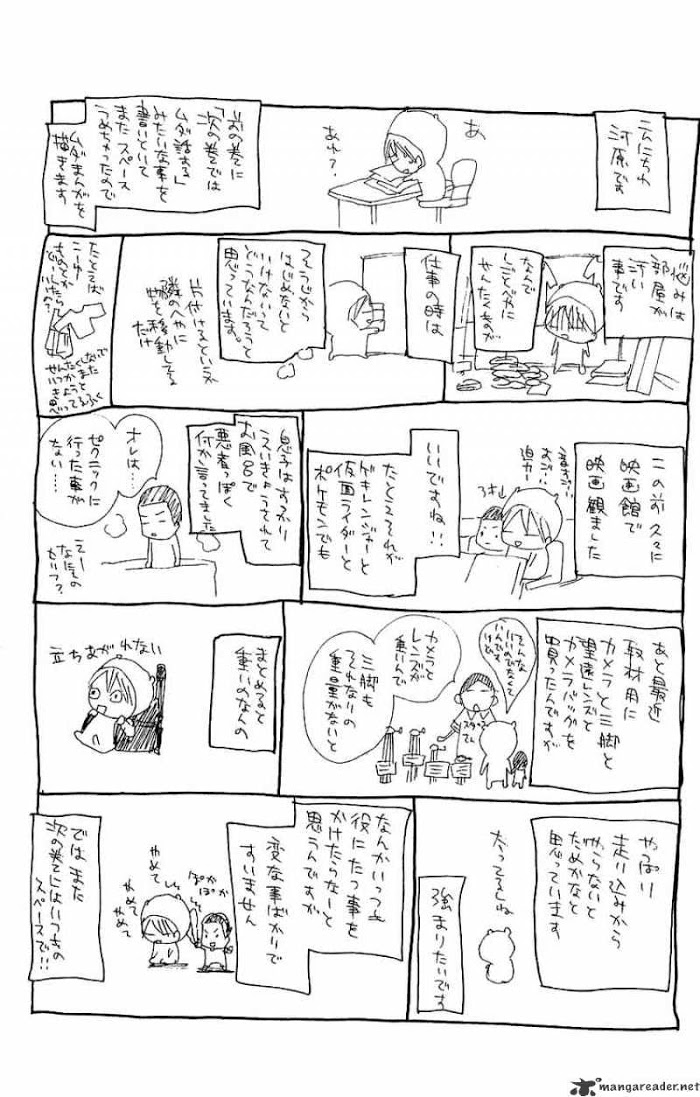 こんにちわ
河原です
あ
あれ?
前の巻に
「次の巻では
ムダ話する」
みたいな事を
書いといて
またスペース
うめちゃったので
ムダまんがを
描きます
悩みは
部屋が
汚い
事です
なんで
しごとべやに
せんたくものが
仕事の時は
そうじから
はじめないと
いけないって
どうなんだろうと
思っています。
片付けるというか
隣のへやに
物を移動してる
だけ
たとえば
こーゆー
この前久々に
映画館で
映画観ました
迫力!
いいですね!!
たとえそれが
ゲキレンジャーと
仮面ライダーと
ポケモンでも
息子はすっかり
えいきょうされて
お風呂で
悪者っぽく
何か言ってました
オレは…
ピクニックに
行った事が
ない…
えーー
なにその
セリフ?
あと最近
取材用に
カメラと三脚と
望遠レンズと
カメラバッグを
買ったんですが
カメラと
レンズが
重いんで
三脚も
それなりの
重量がないと
スタッフ
さん
まとめると
重いのなんの
立ちあがれない
やっぱり
走り込みから
やらないと
だめかなと
思っています
太ってるしね
強まりたいです
なんかいつも
役にたつ事を
かけたらなーと
思うんですが
変な事ばかりで
すいません
ぽかぽか
やめて
やめて
やめて
ではまた
次の巻にはいつもの
スペースで!!
mangareader.net